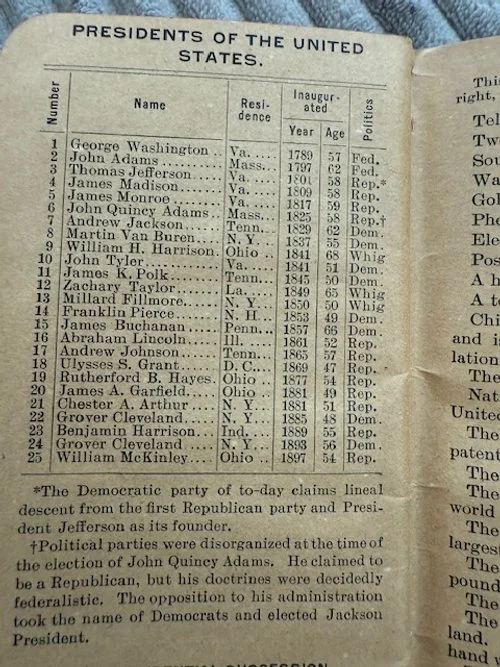 PRESIDENTS OF THE UNITED
STATES.
Number Name Resi-dence Inaugur-ated Politics
Year Age
1 George Washington .. Va. ..... 1789 57 Fed.
2 John Adams .......... Mass... 1797 62 Fed.
3 Thomas Jefferson..... Va. ..... 1801 58 Rep.*
4 James Madison....... Va. ..... 1809 58 Rep.
5 James Monroe ....... Va. ..... 1817 59 Rep.
6 John Quincy Adams.. Mass... 1825 58 Rep.†
7 Andrew Jackson...... Tenn... 1829 62 Dem.
8 Martin Van Buren.... N. Y... 1837 55 Dem.
9 William H. Harrison. Ohio .. 1841 68 Whig
10 John Tyler........... Va. ..... 1841 51 Dem.
11 James K. Polk........ Tenn... 1845 50 Dem.
12 Zachary Taylor...... La. ..... 1849 65 Whig
13 Millard Fillmore..... N. Y... 1850 50 Whig
14 Franklin Pierce...... N. H... 1853 49 Dem.
15 James Buchanan..... Penn... 1857 66 Dem.
16 Abraham Lincoln..... Ill. ..... 1861 52 Rep.
17 Andrew Johnson..... Tenn... 1865 57 Rep.
18 Ulysses S. Grant..... D. C.... 1869 47 Rep.
19 Rutherford B. Hayes. Ohio .. 1877 54 Rep.
20 James A. Garfield.... Ohio .. 1881 49 Rep.
21 Chester A. Arthur.... N. Y... 1881 51 Rep.
22 Grover Cleveland.... N. Y... 1885 48 Dem.
23 Benjamin Harrison... Ind. ... 1889 55 Rep.
24 Grover Cleveland.... N. Y... 1893 56 Dem.
25 William McKinley.... Ohio .. 1897 54 Rep.
*The Democratic party of to-day claims lineal
descent from the first Republican party and Presi-
dent Jefferson as its founder.
†Political parties were disorganized at the time of
the election of John Quincy Adams. He claimed to
be a Republican, but his doctrines were decidedly
federalistic. The opposition to his administration
took the name of Democrats and elected Jackson
President.
SUCCESSION
right,
Tel
Wa
Gol
Pho
Ele
Pos
A h
A t
Chi
and i
lation
The
Nat
Unite
The
patent
The
The
world
The
larges
The
pound
The
The
land.
hand